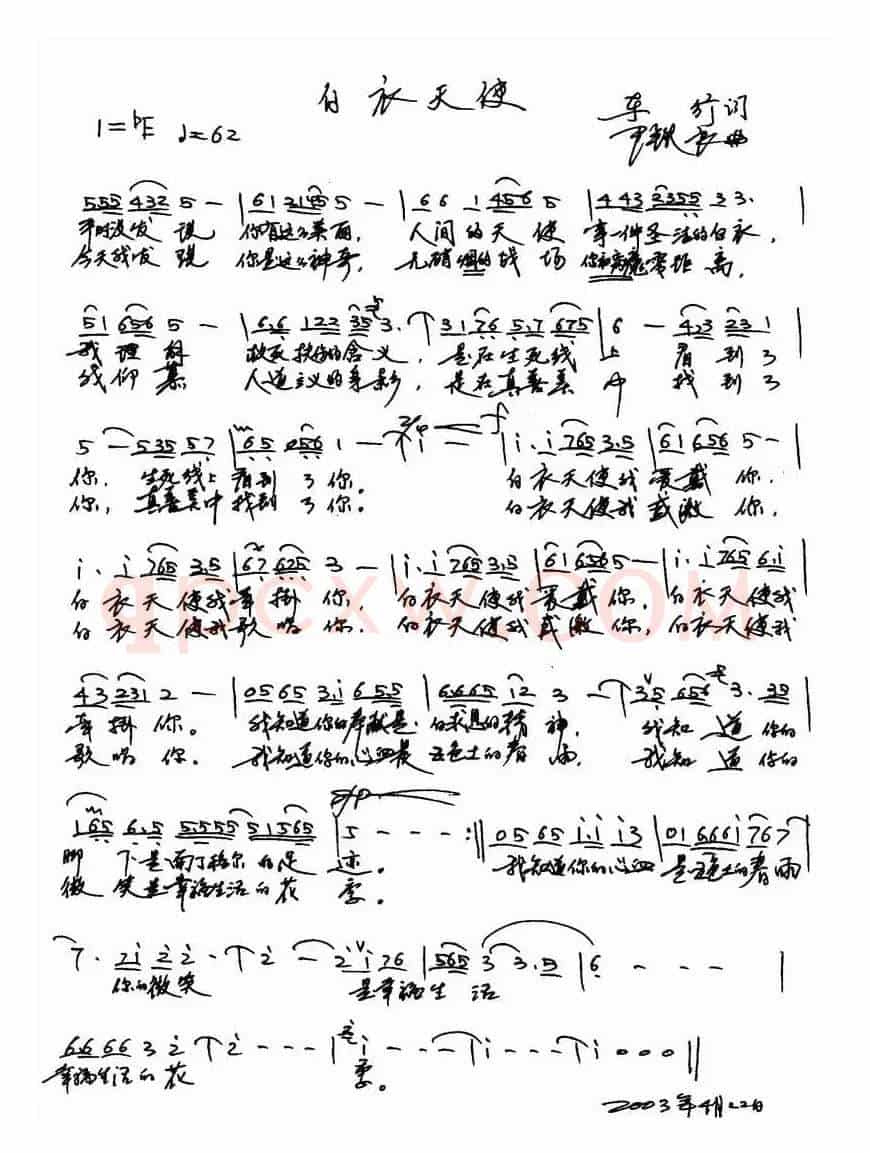 白衣天使
车 行 词
1=♭E ♩=62
曲
555 432 5 — | 61 2145 5 — | 66 1 456 5 | 443 2355 33. |
平时没发现 你有这么美丽, 人间的天使 穿一件圣洁的白衣,
今天我发现 你是这么神奇, 无硝烟的战场 你和病魔零距离,
51 656 5 — | 6.6 122 35 3. | 31 76 5.7 675 | 6 — 43 231 |
我理解 救死扶伤的含义, 是在生死线上看到了
我仰慕 人道主义的身影, 是在真善美中找到了
5 — 535 57 | 65 056 1 — | i — | i.i 765 3.5 | 61 656 5 — |
你, 生死线上看到了你。 白衣天使我爱戴你,
你, 真善美中找到了你。 白衣天使我感激你,
i.i 765 3.5 | 67 625 3 — | i.i 765 3.5 | 61 656 5 — | i.i 765 6.i |
白衣天使我牵挂你, 白衣天使我爱戴你, 白衣天使我
白衣天使我歌唱你. 白衣天使我感激你, 白衣天使我
qpcxw.COM
43 231 2 — | 05 65 3.i 6 5.5 | 6.665 i2 3 — | 35 656 3. 35 |
牵挂你。 我知道你的奉献是 白求恩的精神, 我知道你的
歌唱你. 我知道你的心血是 五色土的春雨, 我知道你的
165 6.5 5.555 51565 | 5 - - - :|| 05 65 i.i i3 | 01 666i 767 |
脚下是南丁格尔的足迹。 我知道你的心血 是五色土的春雨
微笑是幸福生活的花季。
7. 7i 22. | 2 — 2i 76 | 565 3 3.5 | 6 - - - |
你的微笑 是幸福生活
6.6 66 3 2 | 2 - - - | i - - - | i - - - | i 0 0 0 ||
幸福生活的花季。
2003年4月22日